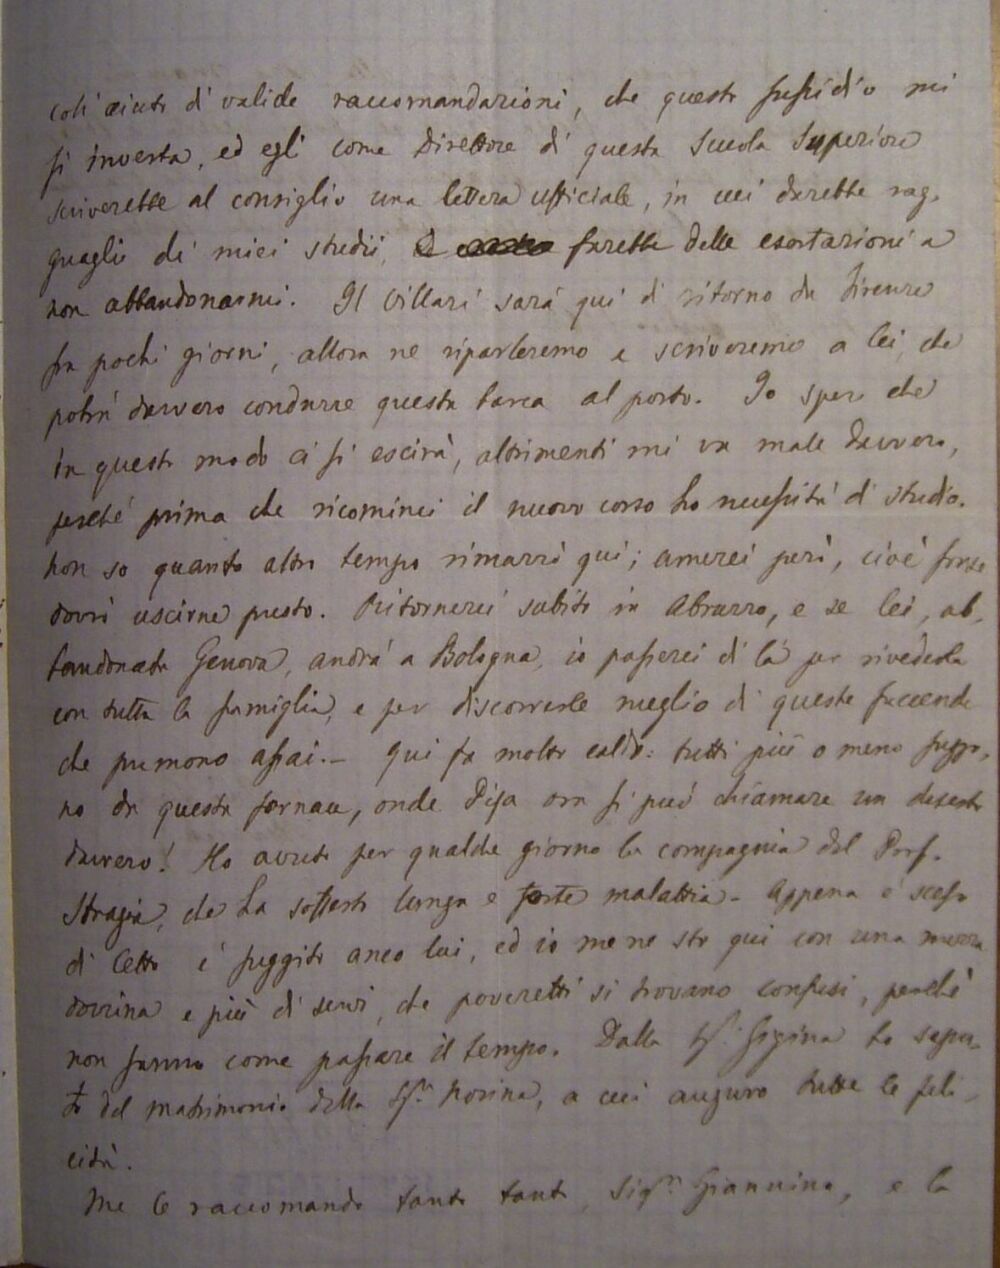 coll'aiuto di valide raccomandazioni, che questo sussidio mi
si investa, ed egli come Direttore di questa Scuola Superiore
scriverebbe al consiglio una lettera ufficiale, in cui darebbe rag-
guaglio de' miei studii, e farebbe delle esortazioni a
non abbandonarmi. Il Villari sarà qui di ritorno da Firenze
fra pochi giorni, allora ne riparleremo e scriveremo a lei, che
potrà davvero condurre questa barca al porto. Io spero che
in questo modo ci si escirà, altrimenti mi va male davvero,
perché prima che ricominci il nuovo corso ho necessità di studio.
Non so quanto altro tempo rimarrò qui; amerei però, cioè forse
dovrò uscirne presto. Ritornerei subito in Abruzzo, e se lei, ab-
bandonata Genova, andrà a Bologna, io passerei di là per rivederla
con tutta la famiglia, e per discorrerle meglio di queste faccende
che premono assai.— Qui fa molto caldo: tutti più o meno fuggo-
no da questa fornace, onde Pisa ora si può chiamare un deserto
davvero! Ho avuto per qualche giorno la compagnia del Prof.
che ha sofferto lunga e forte malattia. Appena è sceso
di letto è fuggito anco lui, ed io me ne sto qui con una mezza
dozzina e più di servi, che poveretti si trovano confusi, perchè
non sanno come passare il tempo. Dalla Sig.ª Gigina ho sapu-
to del matrimonio della Sig.ª Norina, a cui auguro tutte le feli-
cità.
Me le raccomando tanto tanto, Sigr.ª Giannina, e la